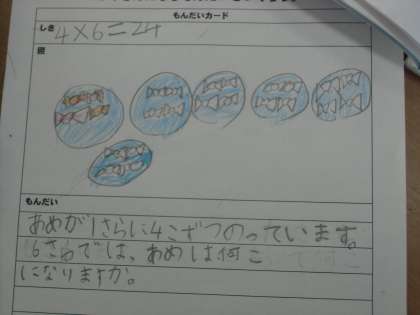 もんだいカード
しき
4×6=24
図
もんだい
あめが1さらに4こずつのっています。
6さらでは、あめは何こ
になりますか。